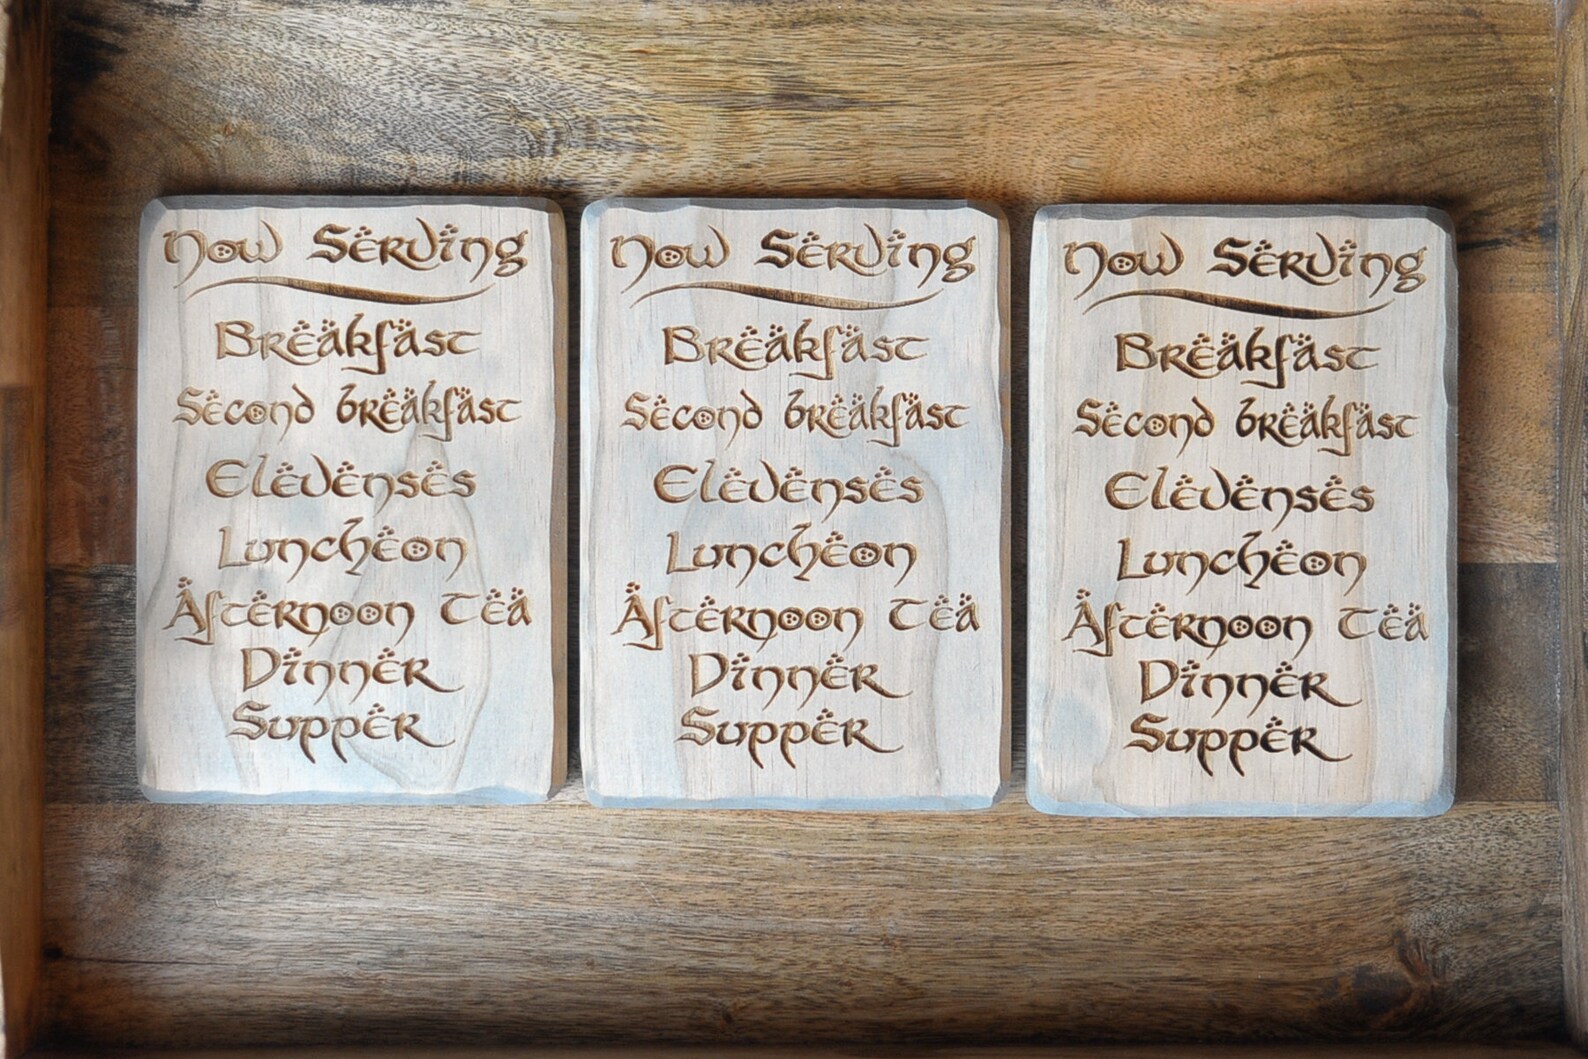 Now Serving
Breakfast
Second breakfast
Elevenses
Luncheon
Afternoon Tea
Dinner
Supper
Now Serving
Breakfast
Second breakfast
Elevenses
Luncheon
Afternoon Tea
Dinner
Supper
Now Serving
Breakfast
Second breakfast
Elevenses
Luncheon
Afternoon Tea
Dinner
Supper